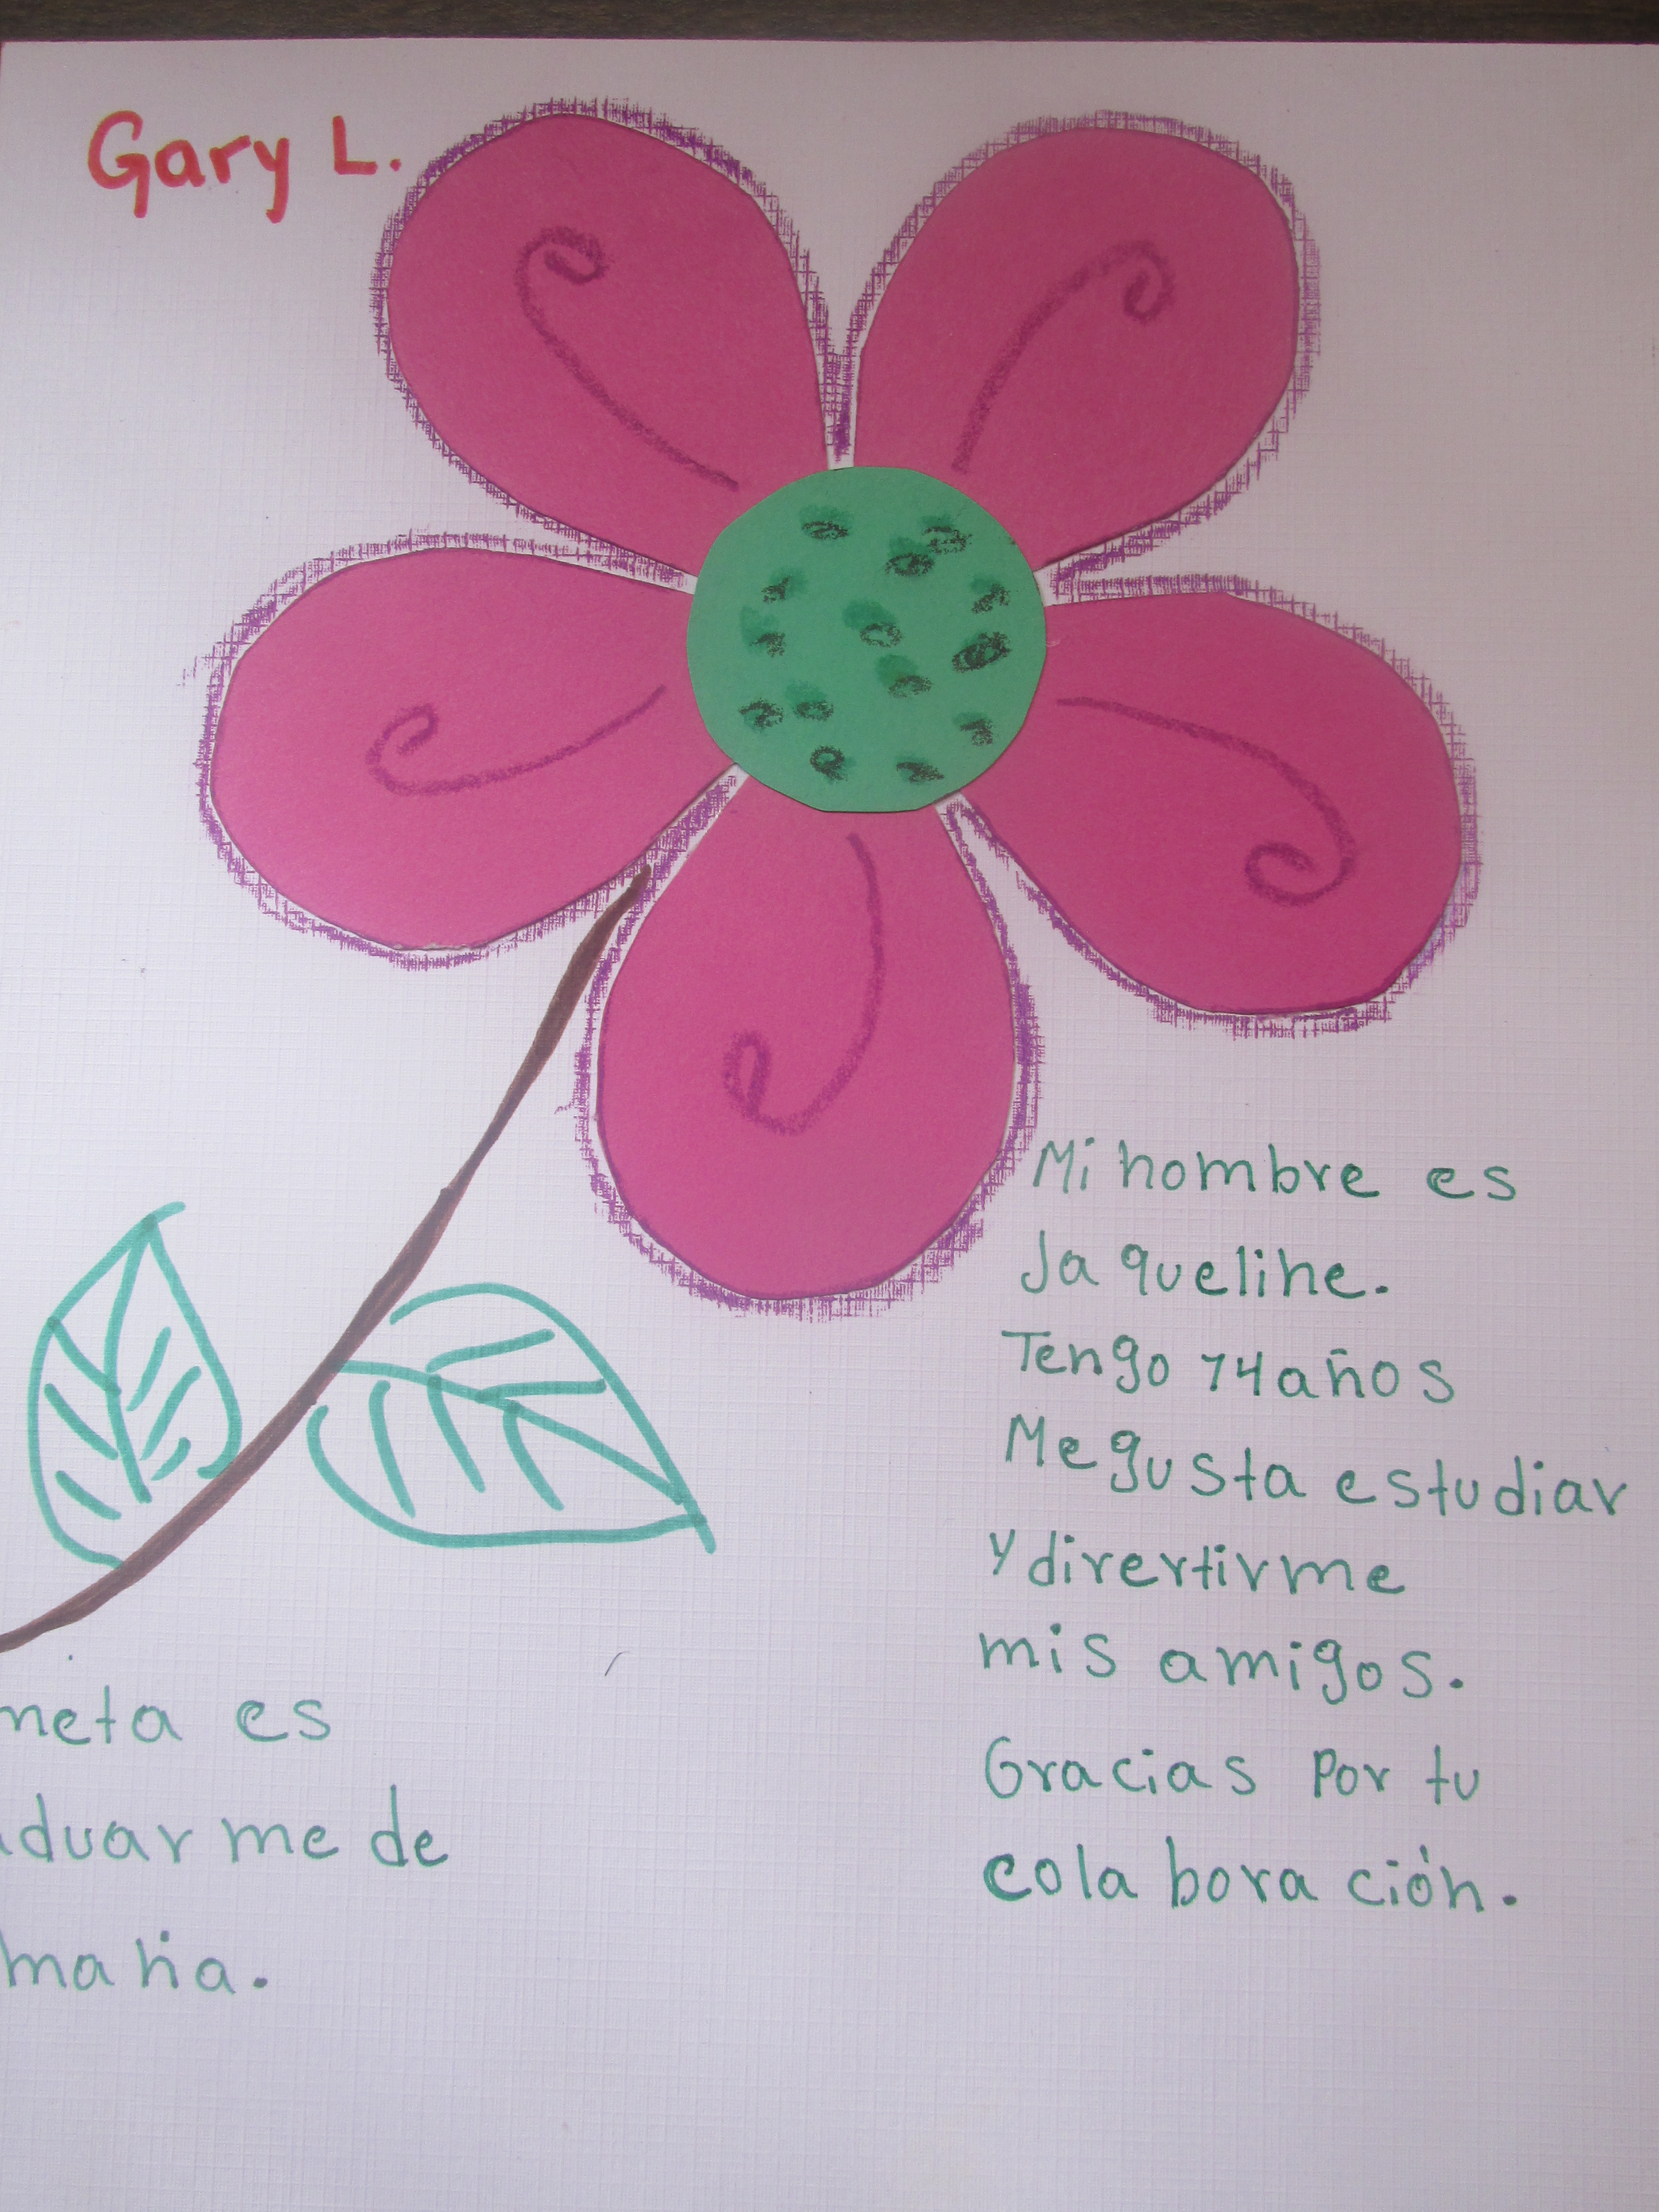 Gary L.
Mi nombre es
Jaqueline.
Tengo 14 años
Me gusta estudiar
y divertirme
mis amigos.
Gracias por tu
colaboración.
meta es
aduarme de
maña.